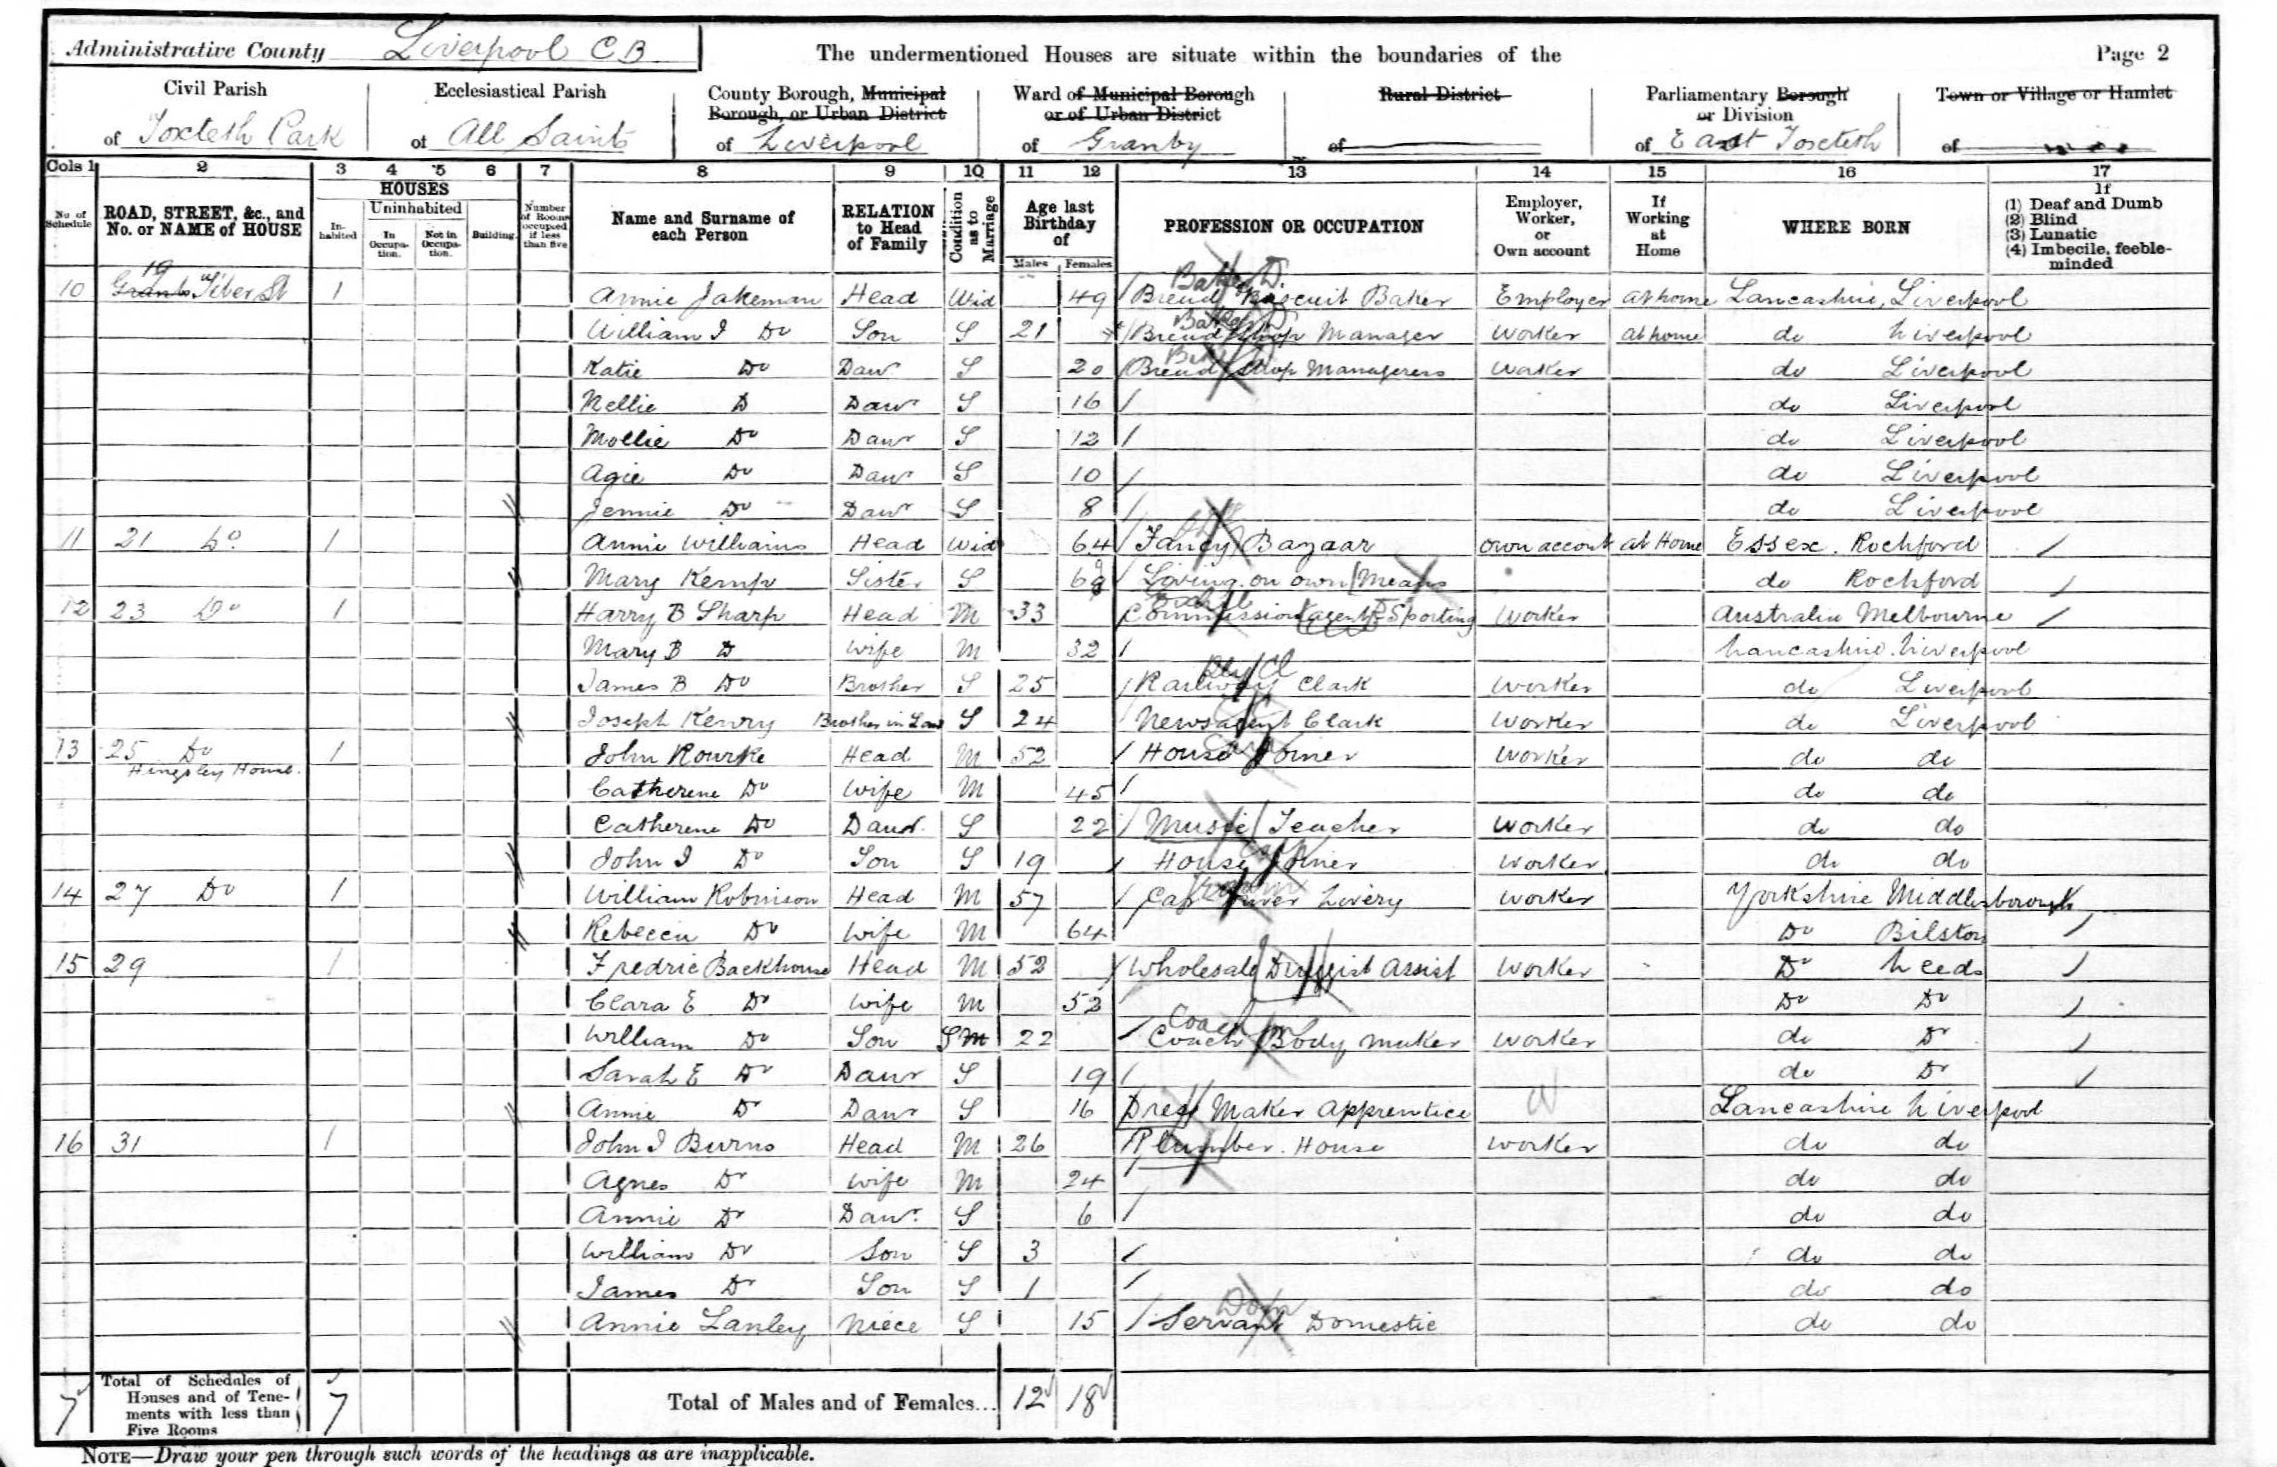 Administrative County Liverpool CB The undermentioned Houses are situate within the boundaries of the Page 2
Civil Parish Ecclesiastical Parish County Borough, Municipal Ward of Municipal Borough Rural District Parliamentary Borough Town or Village or Hamlet
Borough, or Urban District or of Urban District or Division
of Toxteth Park of All Saints of Liverpool of Granby of of East Toxteth of
Cols 1 2 3 4 5 6 7 8 9 10 11 12 13 14 15 16 17
No of Schedule ROAD, STREET, &c., and No. or NAME of HOUSE HOUSES In-habited Uninhabited In Occupa-tion. Not in Occupa-tion. Building. Number of Rooms occupied if less than five Name and Surname of each Person RELATION to Head of Family Condition as to Marriage Age last Birthday of Males Females PROFESSION OR OCCUPATION Employer, Worker, or Own account If Working at Home WHERE BORN If (1) Deaf and Dumb (2) Blind (3) Lunatic (4) Imbecile, feeble-minded
10 19 Tiber St 1 Annie Jakeman Head Wid 49 Bread Biscuit Baker Employer at home Lancashire, Liverpool
William J Do Son S 21 Bread Shop Manager Worker at home do Liverpool
Katie Do Daur S 20 Bread Shop Manageress Worker do Liverpool
Nellie D Daur S 16 do Liverpool
Mollie Do Daur S 12 do Liverpool
Agie Do Daur S 10 do Liverpool
Jennie Do Daur S 8 do Liverpool
11 21 Do 1 Annie Williams Head Wid 64 Fancy Bazaar own account at Home Essex. Rochford
Mary Kemp Sister S Living on own Means do Rochford
12 23 Do 1 Harry B Sharp Head M 33 Commission agent Sporting Worker Australia Melbourne
Mary B D Wife M 32 Lancashire. Liverpool
James B Do Brother S 25 Railway Clark Worker do Liverpool
Joseph Kenry Brother in Law S 24 Newsagent Clark Worker do Liverpool
13 25 Do 1 John Rourke Head M 52 House Joiner Worker do do
Hingsley House.
Catherene Do Wife M 45 do do
Catherene Do Daur. S 22 Music Teacher Worker do do
John J Do Son S 19 House Joiner Worker do do
14 27 Do 1 William Robinson Head M 57 Cab Driver Livery Worker Yorkshire Middlesborough
Rebecca Do Wife M 64 Do Bilston
15 29 1 Fredric Backhouse Head M 52 Wholesale Druggist Assist Worker Do Leeds
Clara E Do Wife M 52 Do Do
William Do Son S M 22 Coach Body Maker Worker do Do
Sarah E Do Daur S 19 do Do
Annie Do Daur S 16 Dress Maker Apprentice W Lancashire Liverpool
16 31 1 John J Burns Head M 26 Plumber. House Worker do do
Agnes Do Wife M 24 do do
Annie Do Daur. S 6 do do
William Do Son S 3 do do
James Do Son S 1 do do
Annie Lanley Niece S 15 Servant Domestic do do
7 Total of Schedules of Houses and of Tene-ments with less than Five Rooms 7 Total of Males and of Females... 12 18
NOTE—Draw your pen through such words of the headings as are inapplicable.